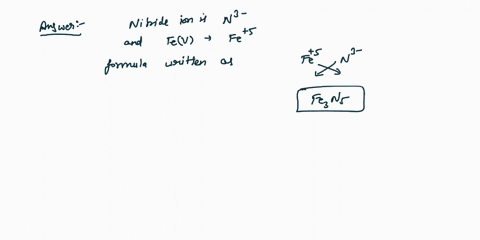 Answer:- Nitride ion is N³⁻
and Fe(V) → Fe⁺⁵
formula written as
Fe⁺⁵ N³⁻
Fe₃N₅